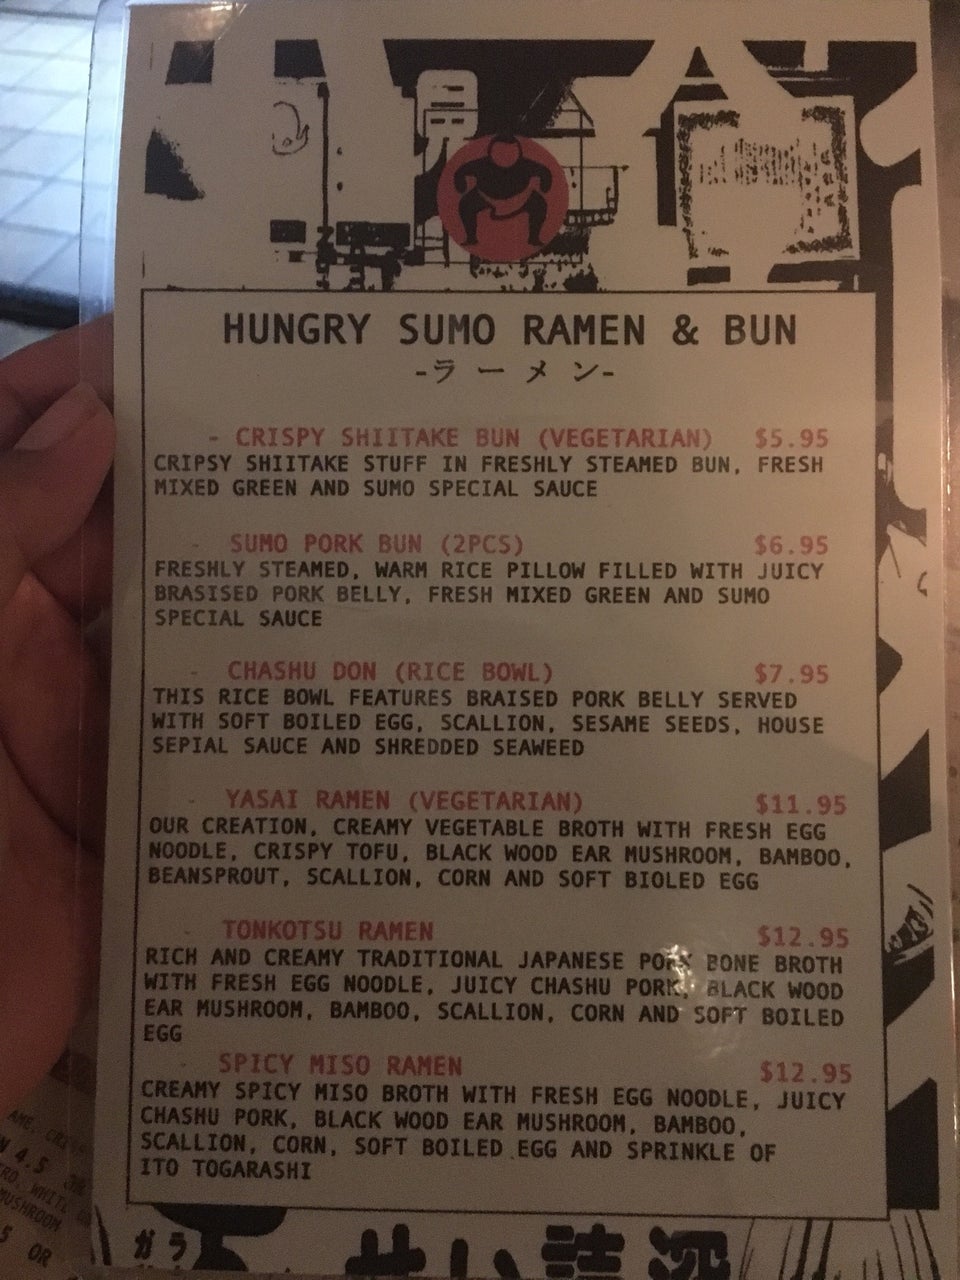 HUNGRY SUMO RAMEN & BUN
-ラーメン-
- CRISPY SHIITAKE BUN (VEGETARIAN) $5.95
CRIPSY SHIITAKE STUFF IN FRESHLY STEAMED BUN, FRESH
MIXED GREEN AND SUMO SPECIAL SAUCE
- SUMO PORK BUN (2PCS) $6.95
FRESHLY STEAMED, WARM RICE PILLOW FILLED WITH JUICY
BRASISED PORK BELLY, FRESH MIXED GREEN AND SUMO
SPECIAL SAUCE
- CHASHU DON (RICE BOWL) $7.95
THIS RICE BOWL FEATURES BRAISED PORK BELLY SERVED
WITH SOFT BOILED EGG, SCALLION, SESAME SEEDS, HOUSE
SEPIAL SAUCE AND SHREDDED SEAWEED
- YASAI RAMEN (VEGETARIAN) $11.95
OUR CREATION, CREAMY VEGETABLE BROTH WITH FRESH EGG
NOODLE, CRISPY TOFU, BLACK WOOD EAR MUSHROOM, BAMBOO,
BEANSPROUT, SCALLION, CORN AND SOFT BIOLED EGG
- TONKOTSU RAMEN $12.95
RICH AND CREAMY TRADITIONAL JAPANESE PORK BONE BROTH
WITH FRESH EGG NOODLE, JUICY CHASHU PORK, BLACK WOOD
EAR MUSHROOM, BAMBOO, SCALLION, CORN AND SOFT BOILED
EGG
- SPICY MISO RAMEN $12.95
CREAMY SPICY MISO BROTH WITH FRESH EGG NOODLE, JUICY
CHASHU PORK, BLACK WOOD EAR MUSHROOM, BAMBOO,
SCALLION, CORN, SOFT BOILED EGG AND SPRINKLE OF
ITO TOGARASHI
4.5
WHITE
MUSHROOM
OR
ガラ